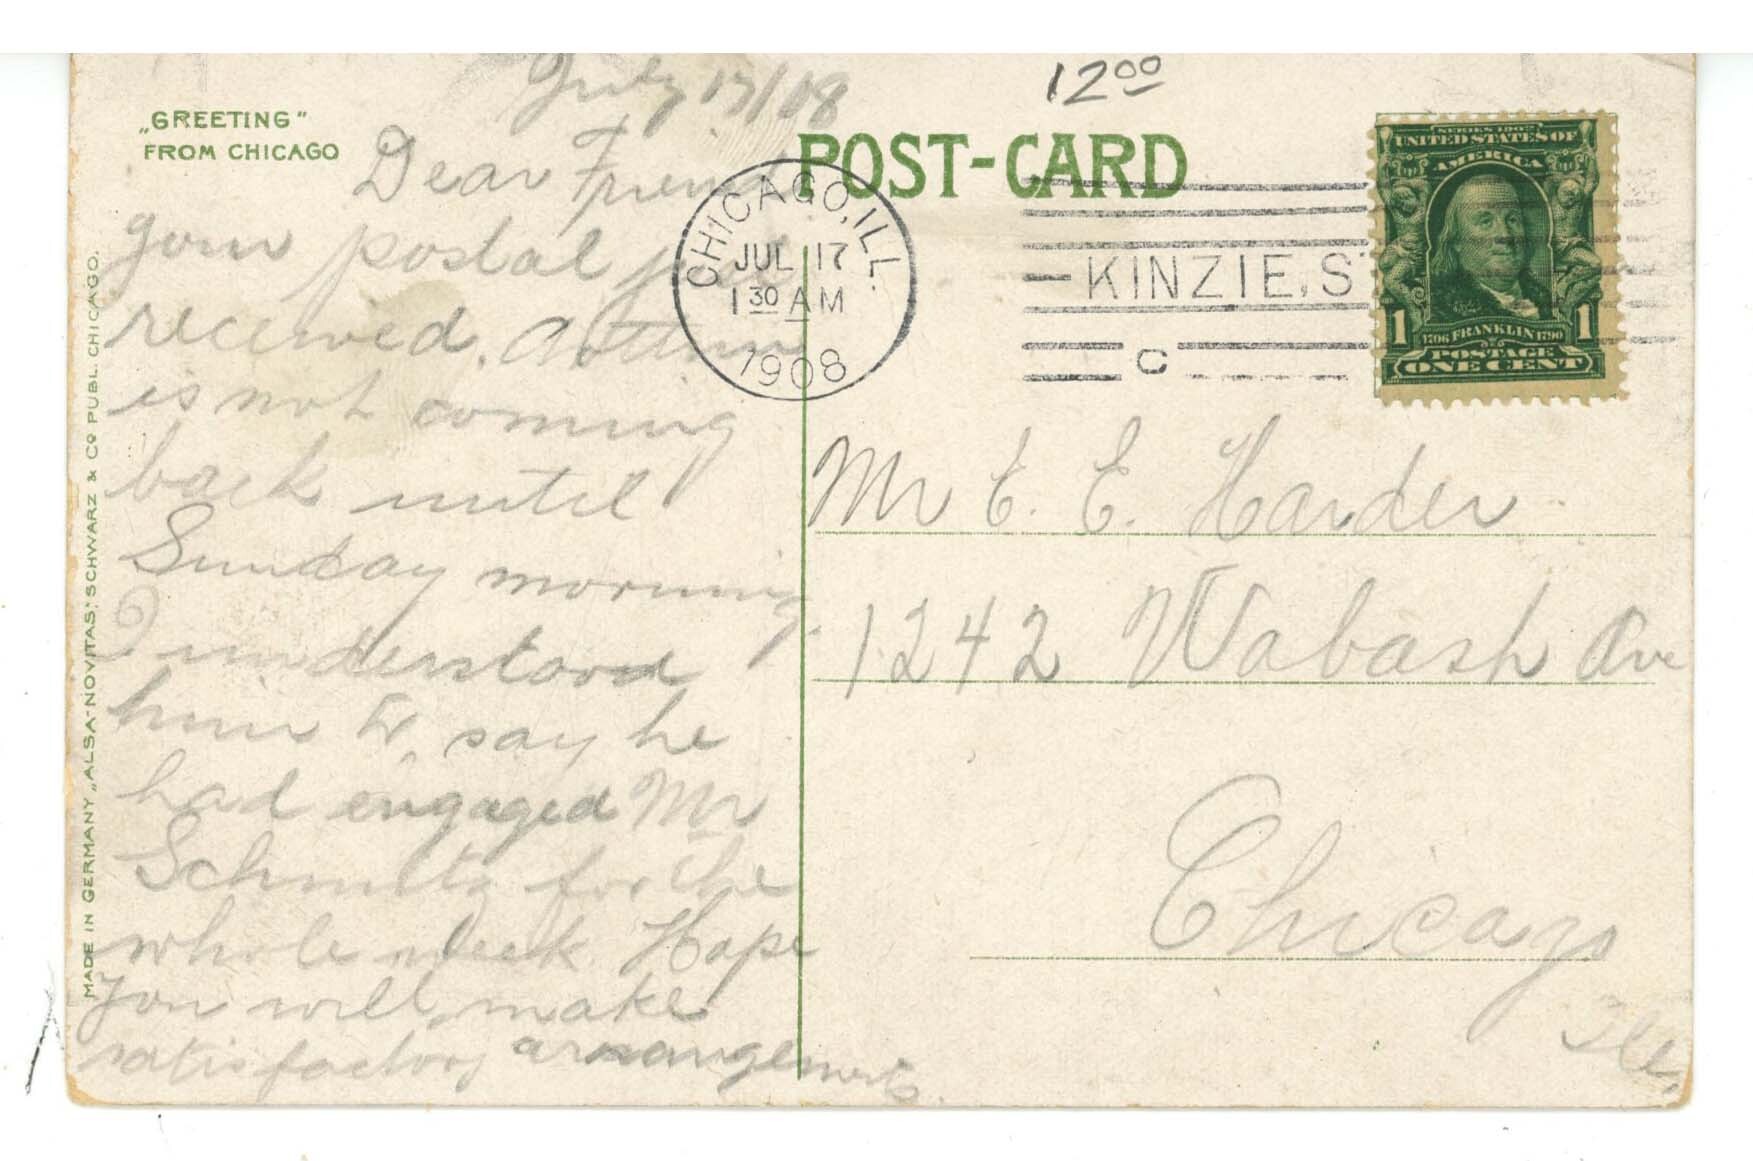 July 17/08
12 00
„GREETING"
FROM CHICAGO
POST-CARD
Dear Friend
your postal just
received.
is not coming
back until
Sunday morning.
I understood
him to say he
had engaged Mr
Schmitz for the
whole week. Hope
you will make
satisfactory arrangements.
MADE IN GERMANY „ALSA-NOVITAS‚ SCHWARZ & Co PUBL. CHICAGO.
CHICAGO, ILL.
JUL 17
1 30 AM
1908
KINZIE, ST
C
SERIES 1902
UNITED STATES OF
AMERICA
1706 FRANKLIN 1790
1 POSTAGE 1
ONE CENT
Mr E. E. Harder
1242 Wabash Ave
Chicago
Ill.